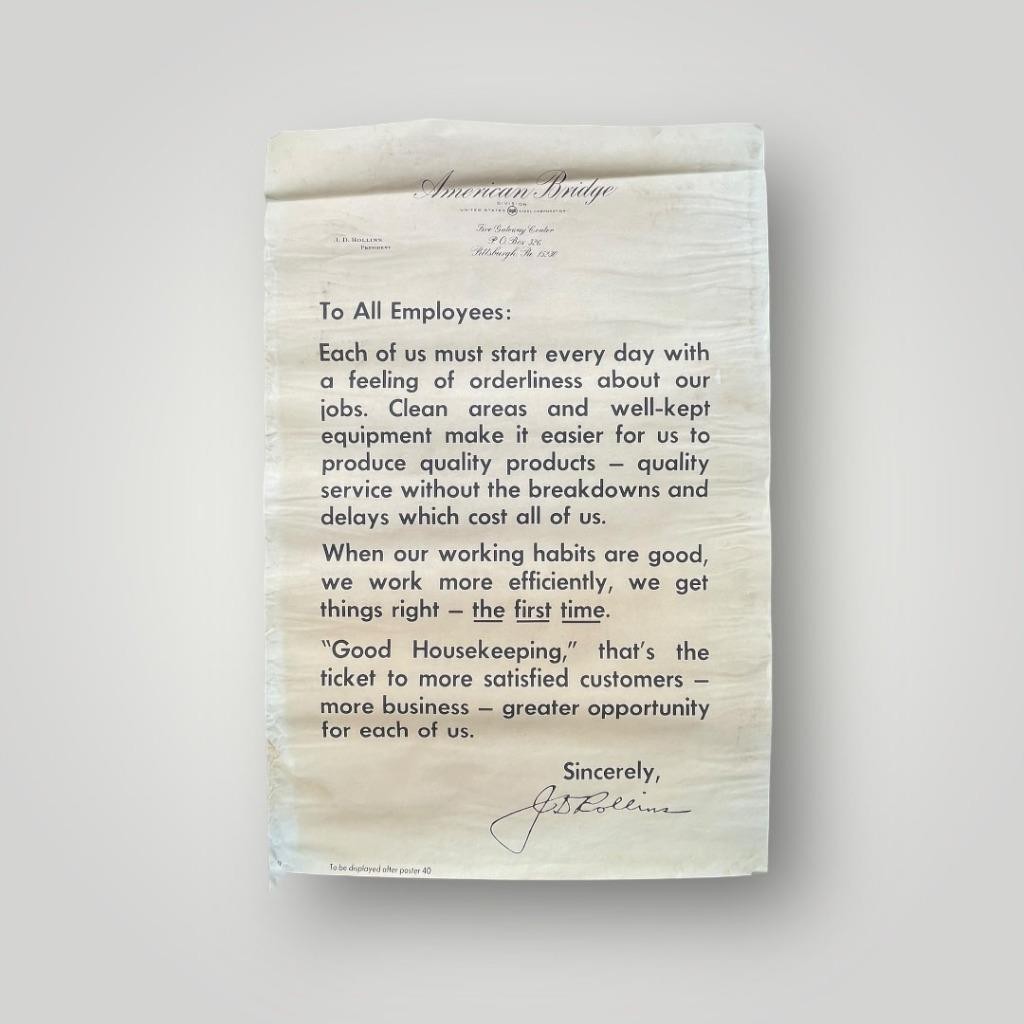 American Bridge
DIVISION
UNITED STATES STEEL CORPORATION
J. D. ROLLINS
PRESIDENT
Five Gateway Center
P. O. Box 326
Pittsburgh, Pa. 15230
To All Employees:
Each of us must start every day with
a feeling of orderliness about our
jobs. Clean areas and well-kept
equipment make it easier for us to
produce quality products – quality
service without the breakdowns and
delays which cost all of us.
When our working habits are good,
we work more efficiently, we get
things right – the first time.
“Good Housekeeping,” that’s the
ticket to more satisfied customers –
more business – greater opportunity
for each of us.
Sincerely,
J D Rollins
To be displayed after poster 40